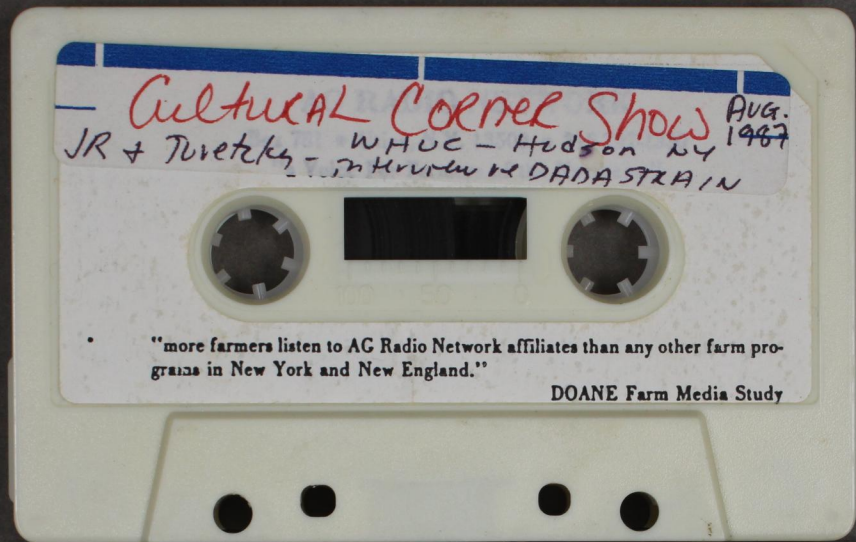 Cultural Corner Show AUG. 1987
JR + Turetzky - WHUC - Hudson NY
- interview re DADA STRAIN
"more farmers listen to AG Radio Network affiliates than any other farm pro-
grams in New York and New England."
DOANE Farm Media Study